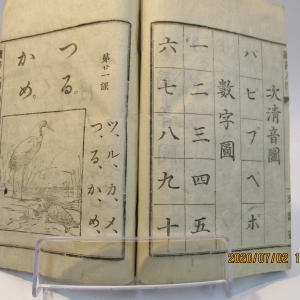 次清音圖
パピプペポ
數字圖
一二三四五
六七八九十
第廿一課
ツ、ル、カ、メ、
つ、る、か、め、
つる。
かめ。
2020/07/02